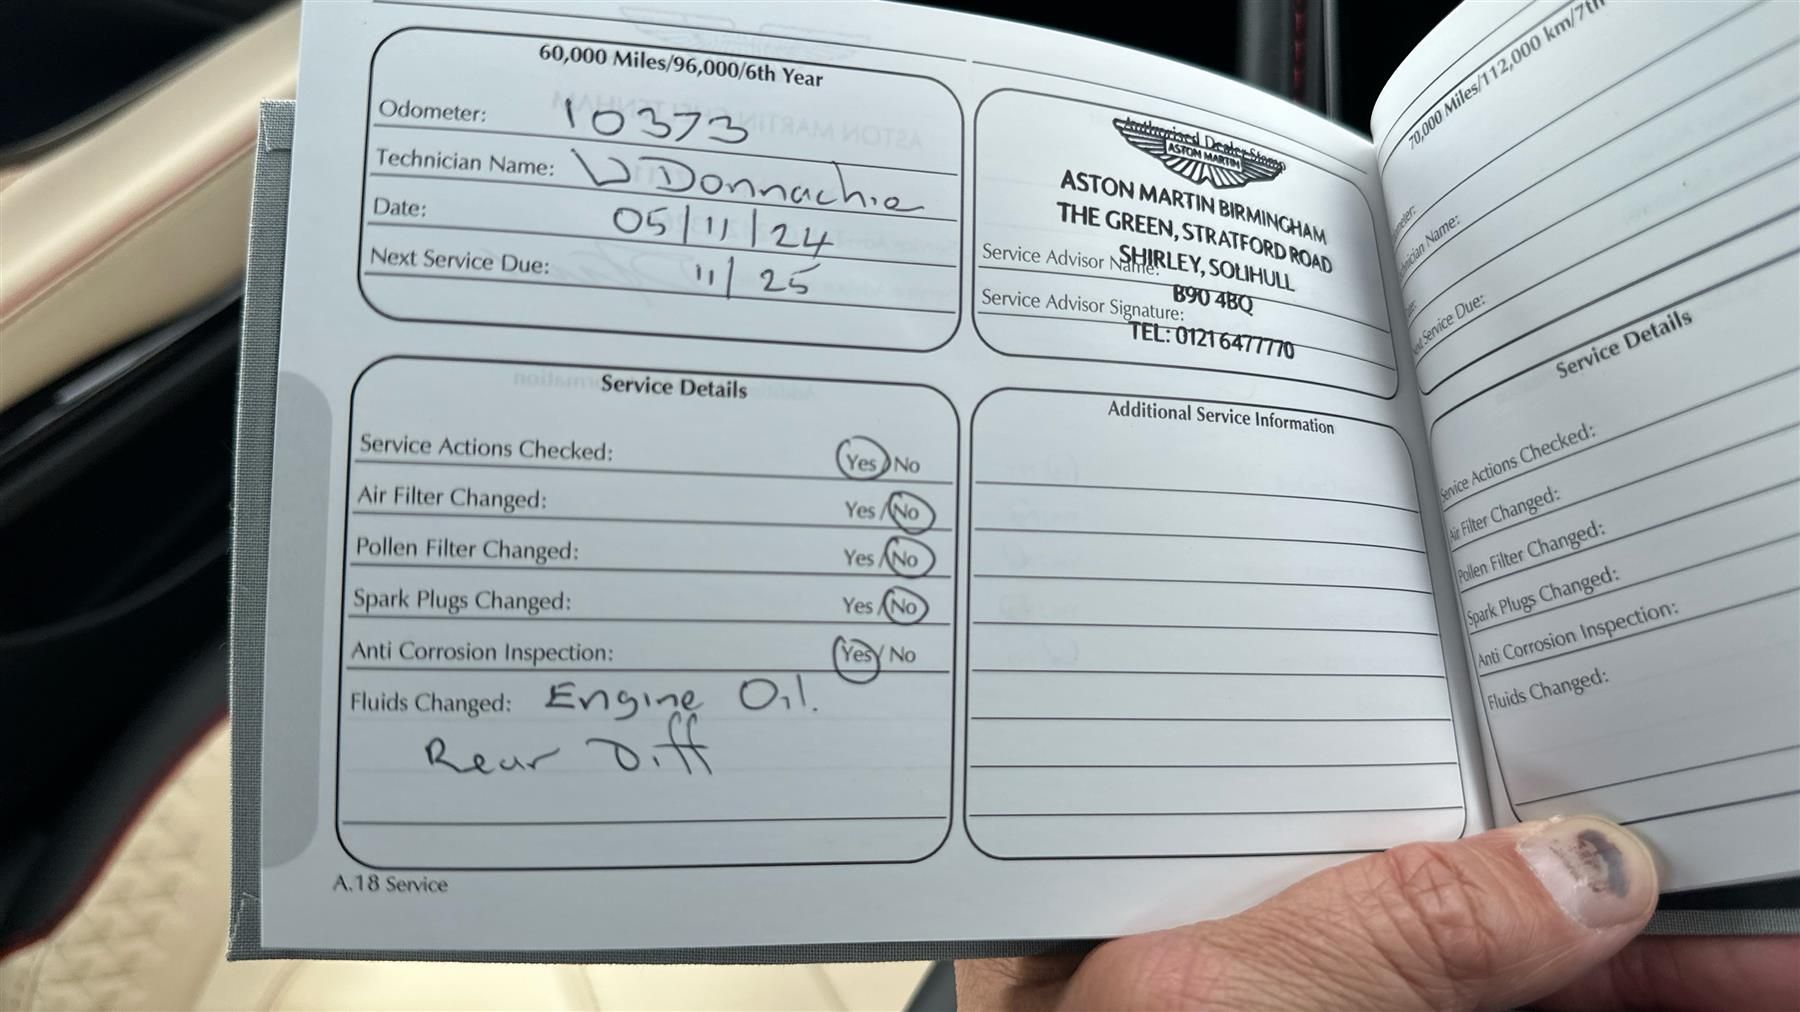 60,000 Miles/96,000/6th Year
Odometer: 10373
Technician Name: W Donnachie
Date: 05/11/24
Next Service Due: 11/25
Authorised Dealer Stamp
ASTON MARTIN
ASTON MARTIN BIRMINGHAM
THE GREEN, STRATFORD ROAD
SHIRLEY, SOLIHULL
Service Advisor Name:
B90 4BQ
Service Advisor Signature:
TEL: 0121 6477770
Service Details
Service Actions Checked: Yes/No
Air Filter Changed: Yes/No
Pollen Filter Changed: Yes/No
Spark Plugs Changed: Yes/No
Anti Corrosion Inspection: Yes/No
Fluids Changed: Engine Oil.
Rear Diff
Additional Service Information
A.18 Service
70,000 Miles/112,000 km/7th
Service Due:
Service Details
Service Actions Checked:
Air Filter Changed:
Pollen Filter Changed:
Spark Plugs Changed:
Anti Corrosion Inspection:
Fluids Changed: